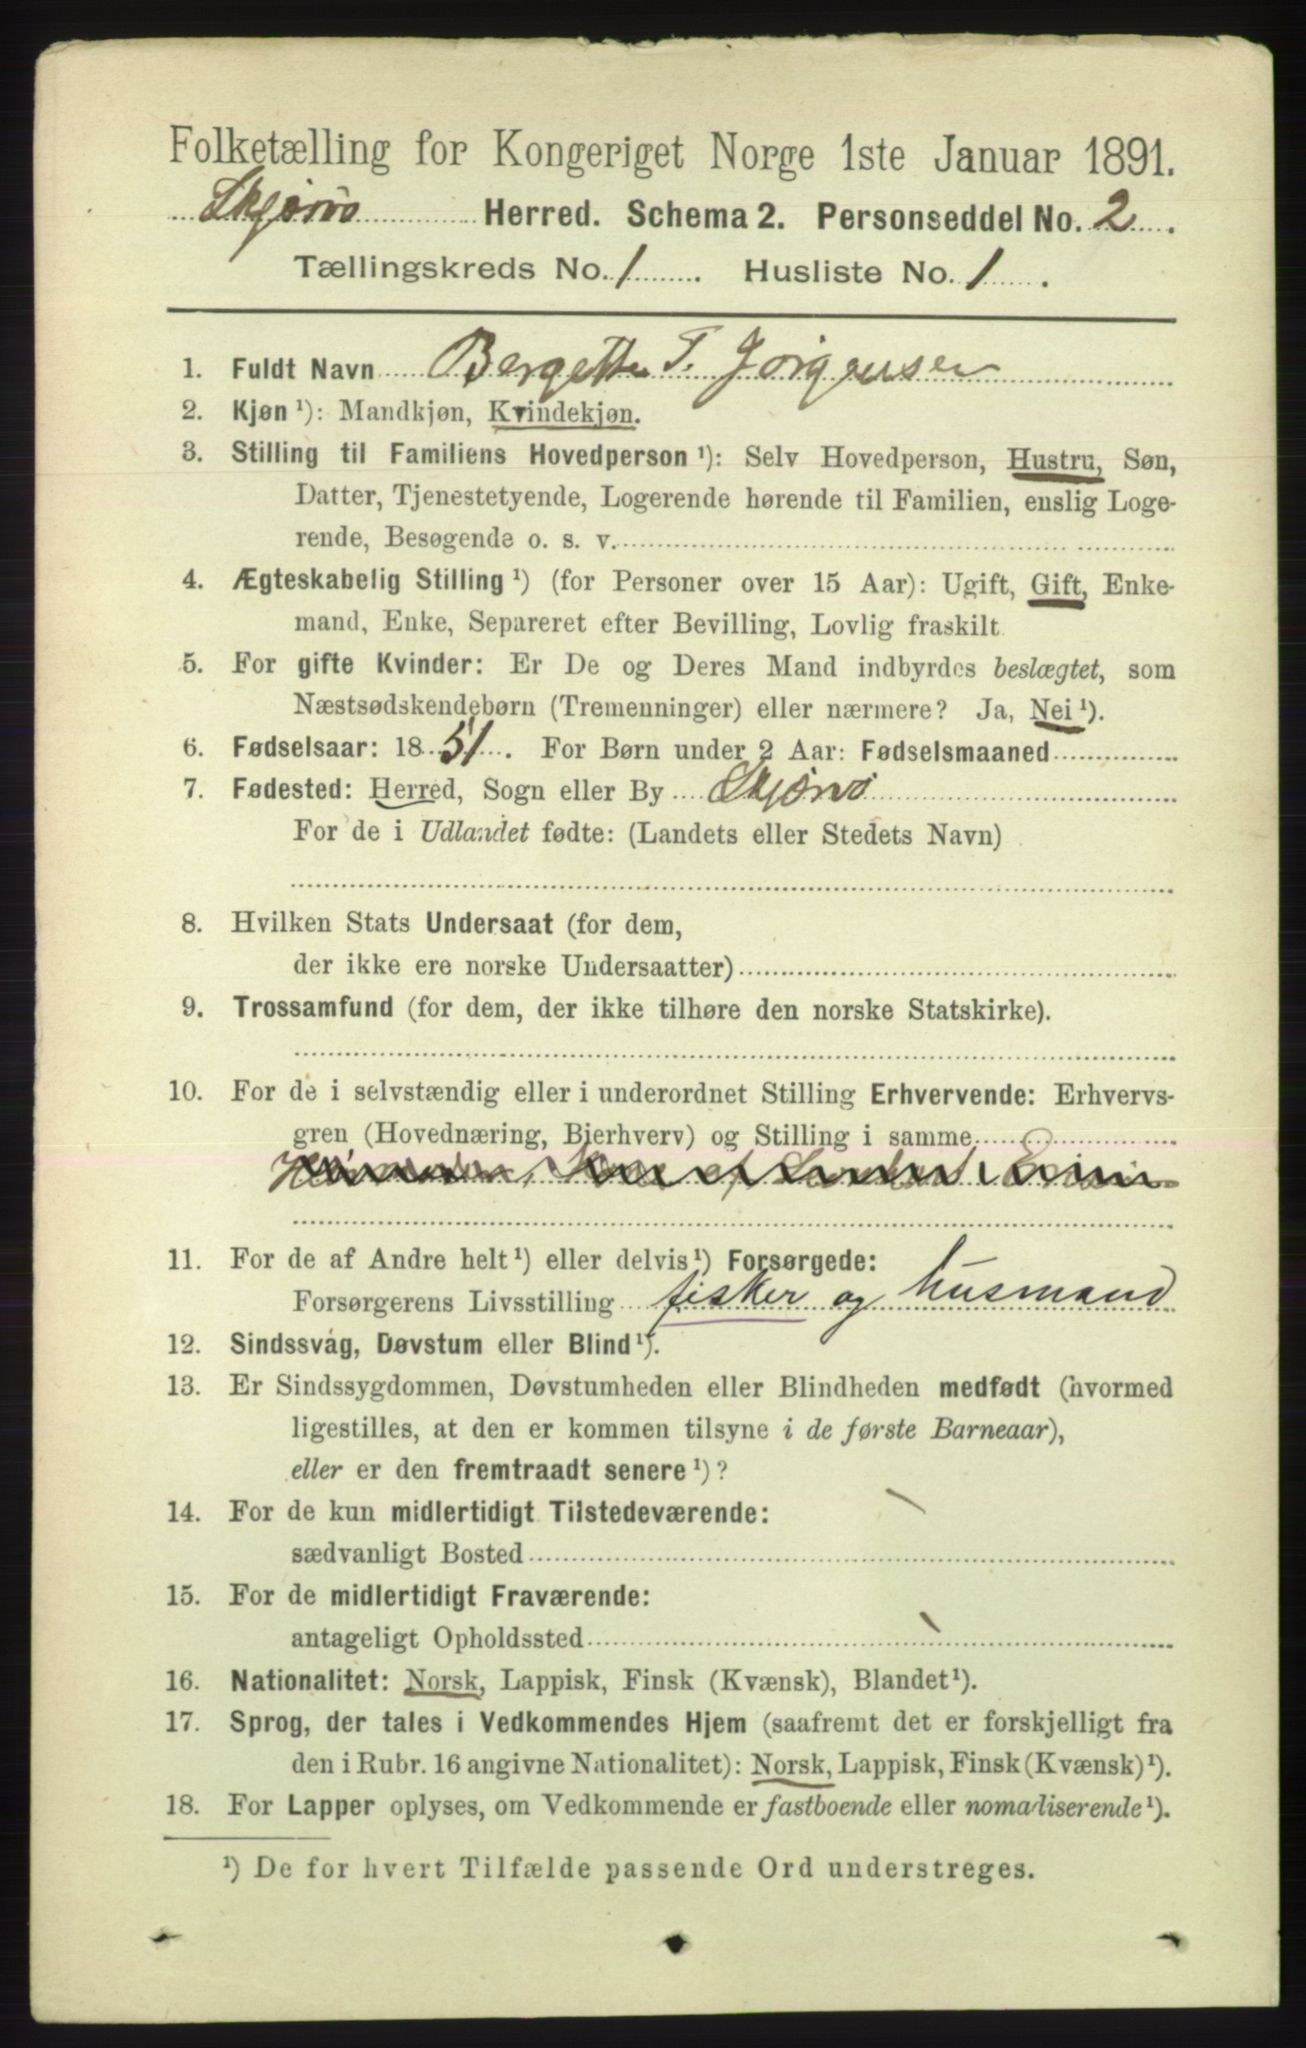 Folketælling for Kongeriget Norge 1ste Januar 1891.
Skjervø Herred. Schema 2. Personseddel No. 2.
Tællingskreds No. 1. Husliste No. 1.
1. Fuldt Navn Bergette T. Jørgensen
2. Kjøn ¹): Mandkjøn, Kvindekjøn.
3. Stilling til Familiens Hovedperson ¹): Selv Hovedperson, Hustru, Søn,
Datter, Tjenestetyende, Logerende hørende til Familien, enslig Loge-
rende, Besøgende o. s. v.
4. Ægteskabelig Stilling ¹) (for Personer over 15 Aar): Ugift, Gift, Enke-
mand, Enke, Separeret efter Bevilling, Lovlig fraskilt
5. For gifte Kvinder: Er De og Deres Mand indbyrdes beslægtet, som
Næstsødskendebørn (Tremenninger) eller nærmere? Ja, Nei ¹).
6. Fødselsaar: 1851. For Børn under 2 Aar: Fødselsmaaned
7. Fødested: Herred, Sogn eller By Skjervø
For de i Udlandet fødte: (Landets eller Stedets Navn)
8. Hvilken Stats Undersaat (for dem,
der ikke ere norske Undersaatter)
9. Trossamfund (for dem, der ikke tilhøre den norske Statskirke).
10. For de i selvstændig eller i underordnet Stilling Erhvervende: Erhvervs-
gren (Hovednæring, Bierhverv) og Stilling i samme
11. For de af Andre helt ¹) eller delvis ¹) Forsørgede:
Forsørgerens Livsstilling fisker og husmand
12. Sindssvag, Døvstum eller Blind ¹).
13. Er Sindssygdommen, Døvstumheden eller Blindheden medfødt (hvormed
ligestilles, at den er kommen tilsyne i de første Barneaar),
eller er den fremtraadt senere ¹)?
14. For de kun midlertidigt Tilstedeværende:
sædvanligt Bosted
15. For de midlertidigt Fraværende:
antageligt Opholdssted
16. Nationalitet: Norsk, Lappisk, Finsk (Kvænsk), Blandet ¹).
17. Sprog, der tales i Vedkommendes Hjem (saafremt det er forskjelligt fra
den i Rubr. 16 angivne Nationalitet): Norsk, Lappisk, Finsk (Kvænsk) ¹).
18. For Lapper oplyses, om Vedkommende er fastboende eller nomadiserende ¹).
¹) De for hvert Tilfælde passende Ord understreges.